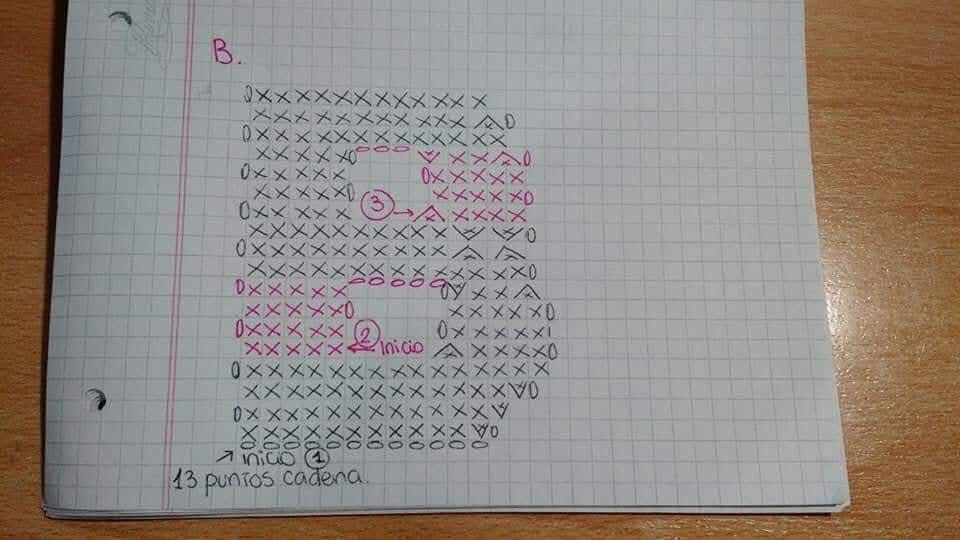 B.
3
2 Inicio
inicio 1
13 puntos cadena.